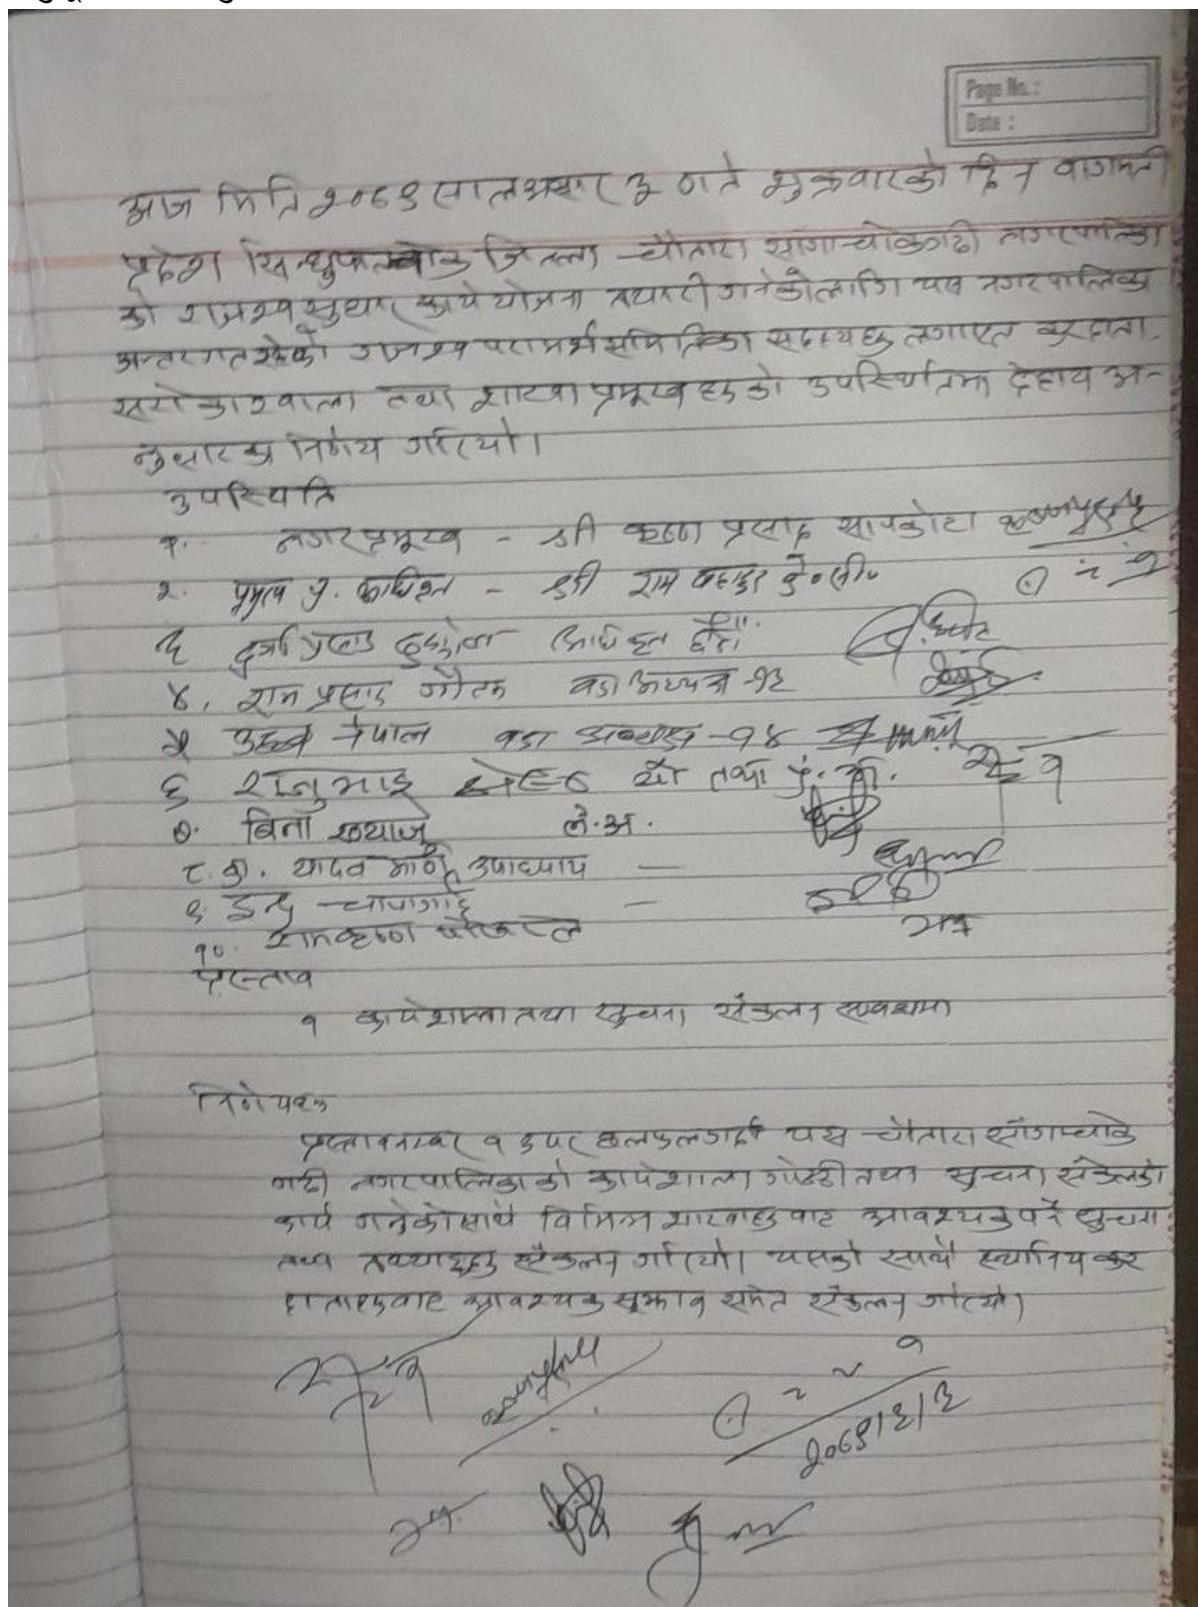 Page No.:
Date:
आज मिति २०७९ साल असार ३ गते शुक्रवारको दिन वागमती
प्रदेश सिन्धुपाल्चोक जिल्ला चौतारा साँगाचोकगढी नगरपालिका
को राजश्व सुधार कार्य योजना तयारी गर्नकोलागि यस नगरपालिका
अन्तरगत रहेको राजश्व परामर्श समितिका सदस्यहरु लगाएत करदाता
सरोकारवाला तथा शाखा प्रमूखहरुको उपस्थितिमा देहाय अ-
नुसारका निर्णय गरियो।
उपस्थिति
१. नगरप्रमूख - श्री कृष्ण प्रसाद सापकोटा
२. प्रमुख प्र. अधिकृत - श्री राम बहादुर के॰सी॰
३ दुर्गा प्रसाद अधिकृत छैठौं
४. राम प्रसाद गौतम वडा अध्यक्ष -१२
५ उद्धव नेपाल वडा अध्यक्ष -१४
६ सानुभाइ श्रेष्ठ यो तथा प्र.
७. बिना ख्याजू ले.अ.
८. डा. यादव मणि उपाध्याय -
९. इन्दु चापागाई -
१०. रामकृष्ण पोखरेल
प्रस्ताव
१ कार्यशाला तथा सुचना संकलन सम्वन्धमा
निर्णयहरु
प्रस्ताव नम्वर १ उपर छलफल गर्दा यस चौतारा साँगाचोक
गढी नगरपालिकाको कार्यशाला गोष्ठी तथा सुचना संकलनको
कार्य गर्नेको साथै विभिन्न शाखाहरुवाट आवश्यक पर्ने सुचना
तथा तथ्याङ्कहरु संकलन गरियो। यसको साथै स्थानिय कर
दाताहरुवाट आवश्यक सूझाव समेत संकलन गरियो।
२०७९/३/३